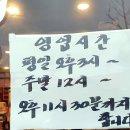 영업시간
평일 오후3시~
주말 12시~
오후 11시 30분까지
합니다